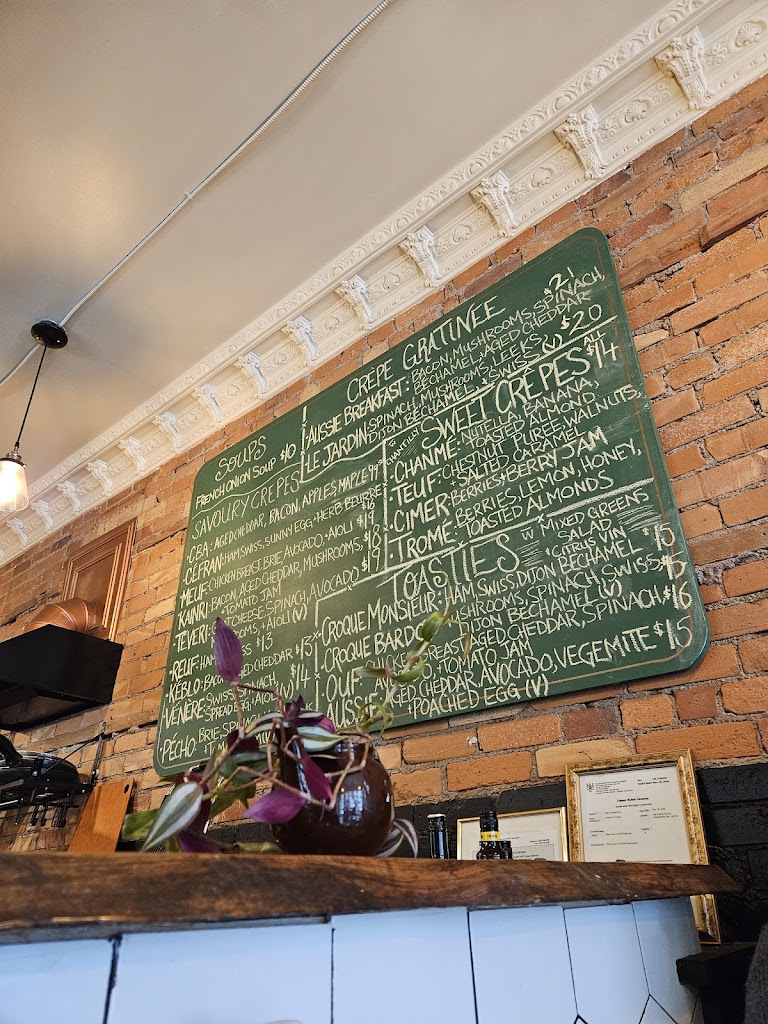 SOUPS
FRENCH ONION SOUP $10
SAVOURY CRÊPES
CBA: AGED CHEDDAR, BACON, APPLES, MAPLE
CÉFRAN: HAM, SWISS, SUNNY EGG, HERB BEURRE $16
MEUF: CHICKEN BREAST, BRIE, AVOCADO, AIOLI $19
KAINRI: BACON, AGED CHEDDAR, MUSHROOMS, $18
TOMATO JAM
TEVERI: CHEESE, SPINACH, AVOCADO $19
MUSHROOMS, AIOLI (V)
REUF: HAM $13
KÉBLO: BACON, AGED CHEDDAR $13
VENÈRE: SWISS, SPINACH, $14
SPREAD EGG, AIOLI (V)
PÉCHO: BRIE,
CRÊPE GRATINEE
AUSSIE BREAKFAST: BACON, MUSHROOMS, SPINACH, $21
BÉCHAMEL, AGED CHEDDAR
LE JARDIN: SPINACH, MUSHROOMS, LEEKS, $20
DIJON BÉCHAMEL & SWISS (V)
SWEET CRÊPES ALL $14
W CHANTILLY
CHANMÉ: NUTELLA, BANANA,
TOASTED ALMOND
TEUF: CHESTNUT PURÉE, WALNUTS,
SALTED CARAMEL
CIMER: BERRIES + BERRY JAM
TROMÉ: BERRIES, LEMON, HONEY,
TOASTED ALMONDS
TOASTIES W MIXED GREENS
SALAD
+ CITRUS VIN
CROQUE MONSIEUR: HAM, SWISS, DIJON BÉCHAMEL $15
CROQUE BARDO: MUSHROOMS, SPINACH, SWISS, $15
DIJON BÉCHAMEL (V)
OUF: BREAST, AGED CHEDDAR, SPINACH, $16
TOMATO JAM
AUSSIE: AGED CHEDDAR, AVOCADO, VEGEMITE $15
+ POACHED EGG (V)